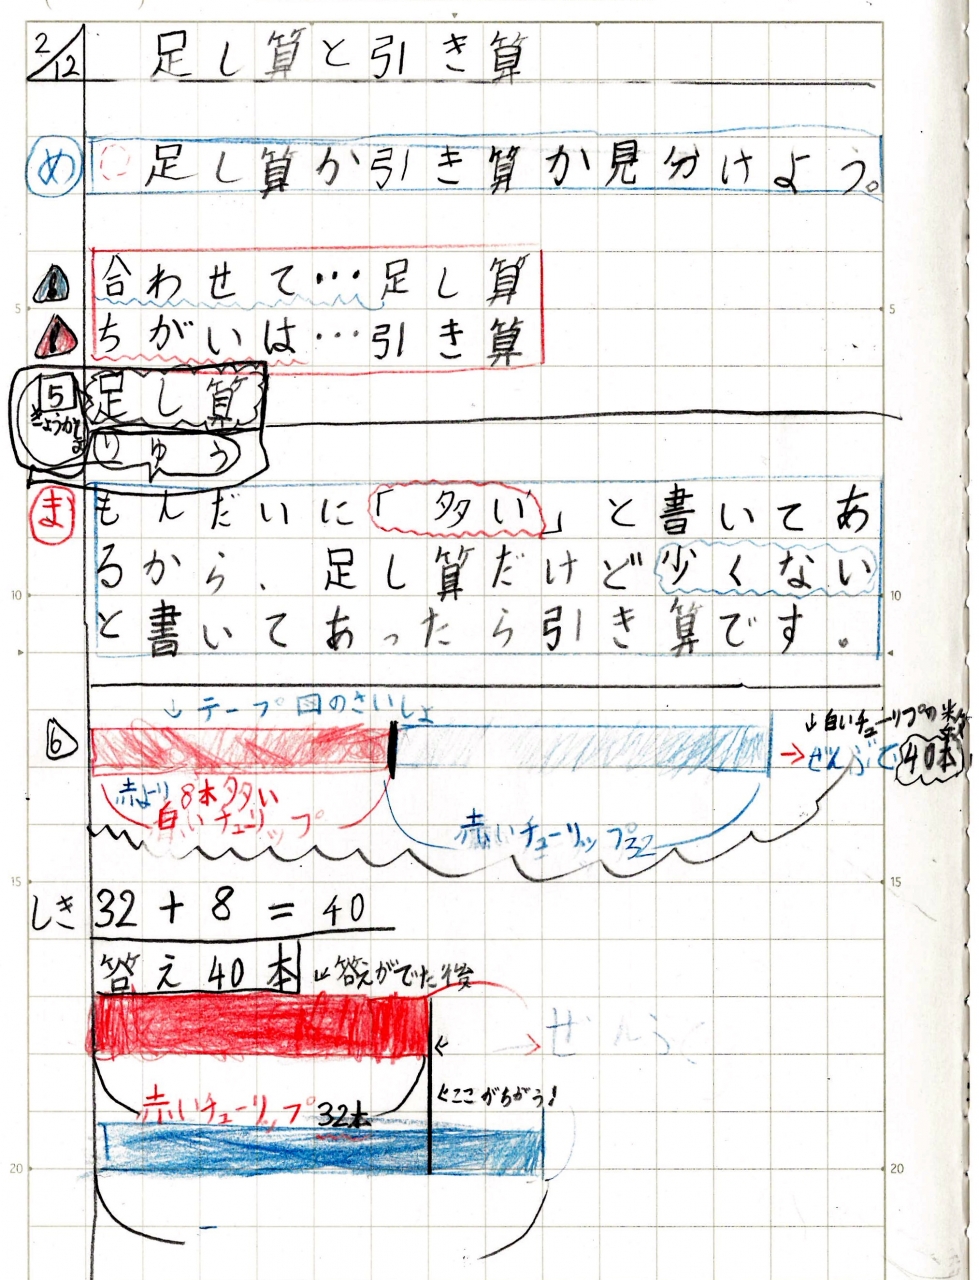 2/12 足し算と引き算
め 足し算か引き算か見分けよう。
合わせて…足し算
ちがいは…引き算
5 足し算
きょうかしょ りゆう
ま もんだいに「多い」と書いてあ
るから、足し算だけど少くない
と書いてあったら引き算です。
↓テープ図のさいしょ
6
↓白いチューリップの
→ぜんぶで40本
赤より8本多い
白いチューリップ
赤いチューリップ32
しき 32+8=40
答え40本 ↓答えがでた後
← →ぜんぶ
赤いチューリップ32本
←ここがちがう!